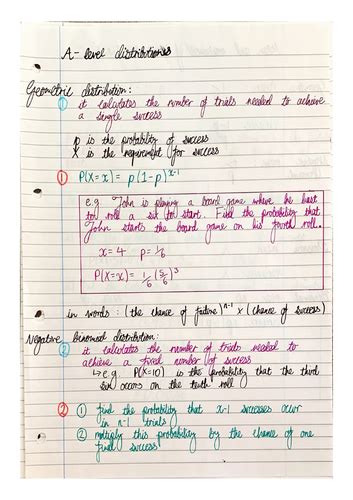 A-level distributions
Geometric distribution:
① it calculates the number of trials needed to achieve
a single success
p is the probability of success
X is the requirement for success
① P(X=x) = p(1-p)^x-1
e.g. John is playing a board game where he has
to roll a six to start. Find the probability that
John starts the board game on his fourth roll.
x=4 p=1/6
P(X=x) = 1/6 (5/6)^3
in words : (the chance of failure)^n-1 x (chance of success)
Negative binomial distribution:
② it calculates the number of trials needed to
achieve a fixed number of success
↳ e.g. P(X=10) is the probability that the third
six occurs on the tenth roll
② ① find the probability that x-1 successes occur
in n-1 trials
② multiply this probability by the chance of one
final success